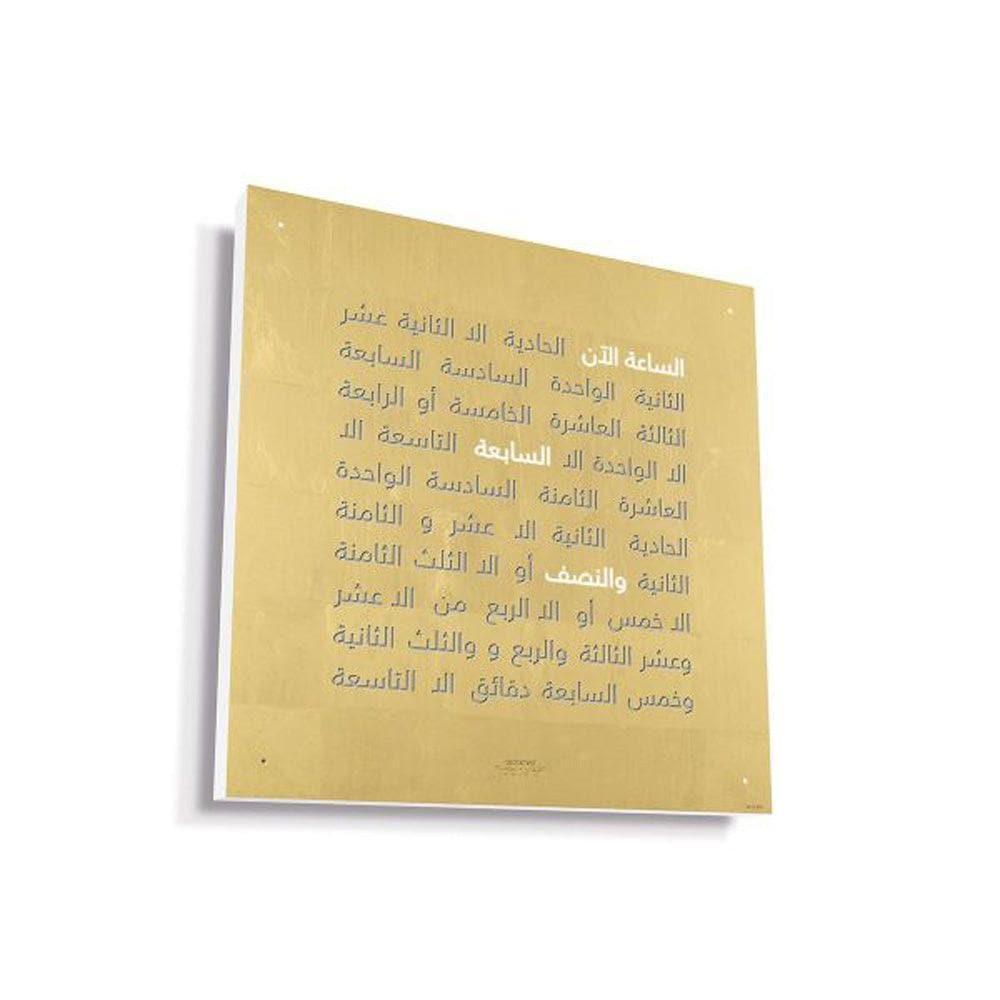 الساعة الآن الحادية الا الثانية عشر
الثانية الواحدة السادسة السابعة
الثالثة العاشرة الخامسة أو الرابعة
الا الواحدة الا السابعة التاسعة الا
العاشرة الثامنة السادسة الواحدة
الحادية الثانية الا عشر و الثامنة
الثانية والنصف أو الا الثلث الثامنة
الا خمس أو الا الربع من الا عشر
وعشر الثالثة والربع و والثلث الثانية
وخمس السابعة دقائق الا التاسعة